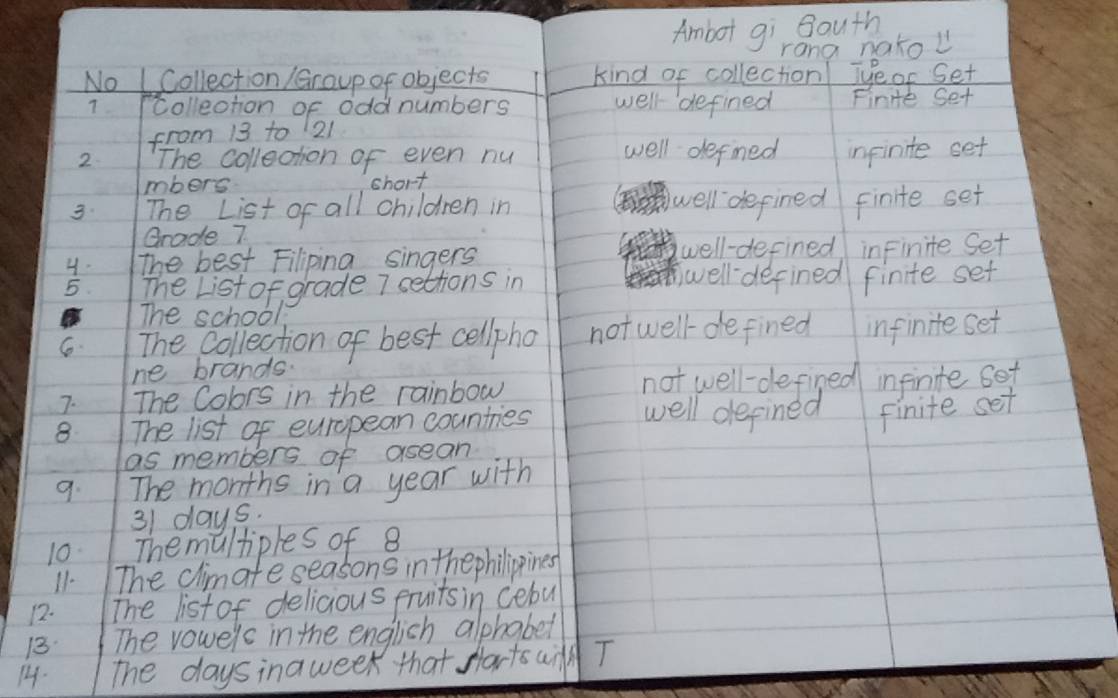 Ambot gi Gauth
rang nako
No Collection/Group of objects Kind of collection Type of Set
1 Collection of odd numbers well-defined Finite Set
from 13 to 21
2. The collection of even nu well-defined infinite set
mbers short
3. The List of all children in well-defined finite set
Grade 7.
4. The best Filipina singers well-defined infinite Set
5. The List of grade 7 sections in well-defined finite set
The school.
6. The Collection of best cellpho not well-defined infinite set
ne brands.
7. The Colors in the rainbow not well-defined infinite set
8. The list of european countries well defined finite set
as members of asean
9. The months in a year with
31 days.
10. The multiples of 8
11. The climate seasons in the philippines
12. The list of delicious fruits in Cebu
13. The vowels in the english alphabet
14. The days in a week that starts with T